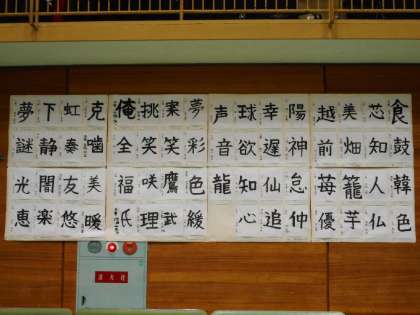 夢下虹克 俺挑案夢 声球幸陽 越美芯食
謎静奏噛 全笑笑彩 音欲遅神 前畑知鼓
光闇友美 福咲鷹色 龍知仙怠 苺籠人韓
恵楽悠暖 氏理武緩 心追仲 優芋仏色
消火栓